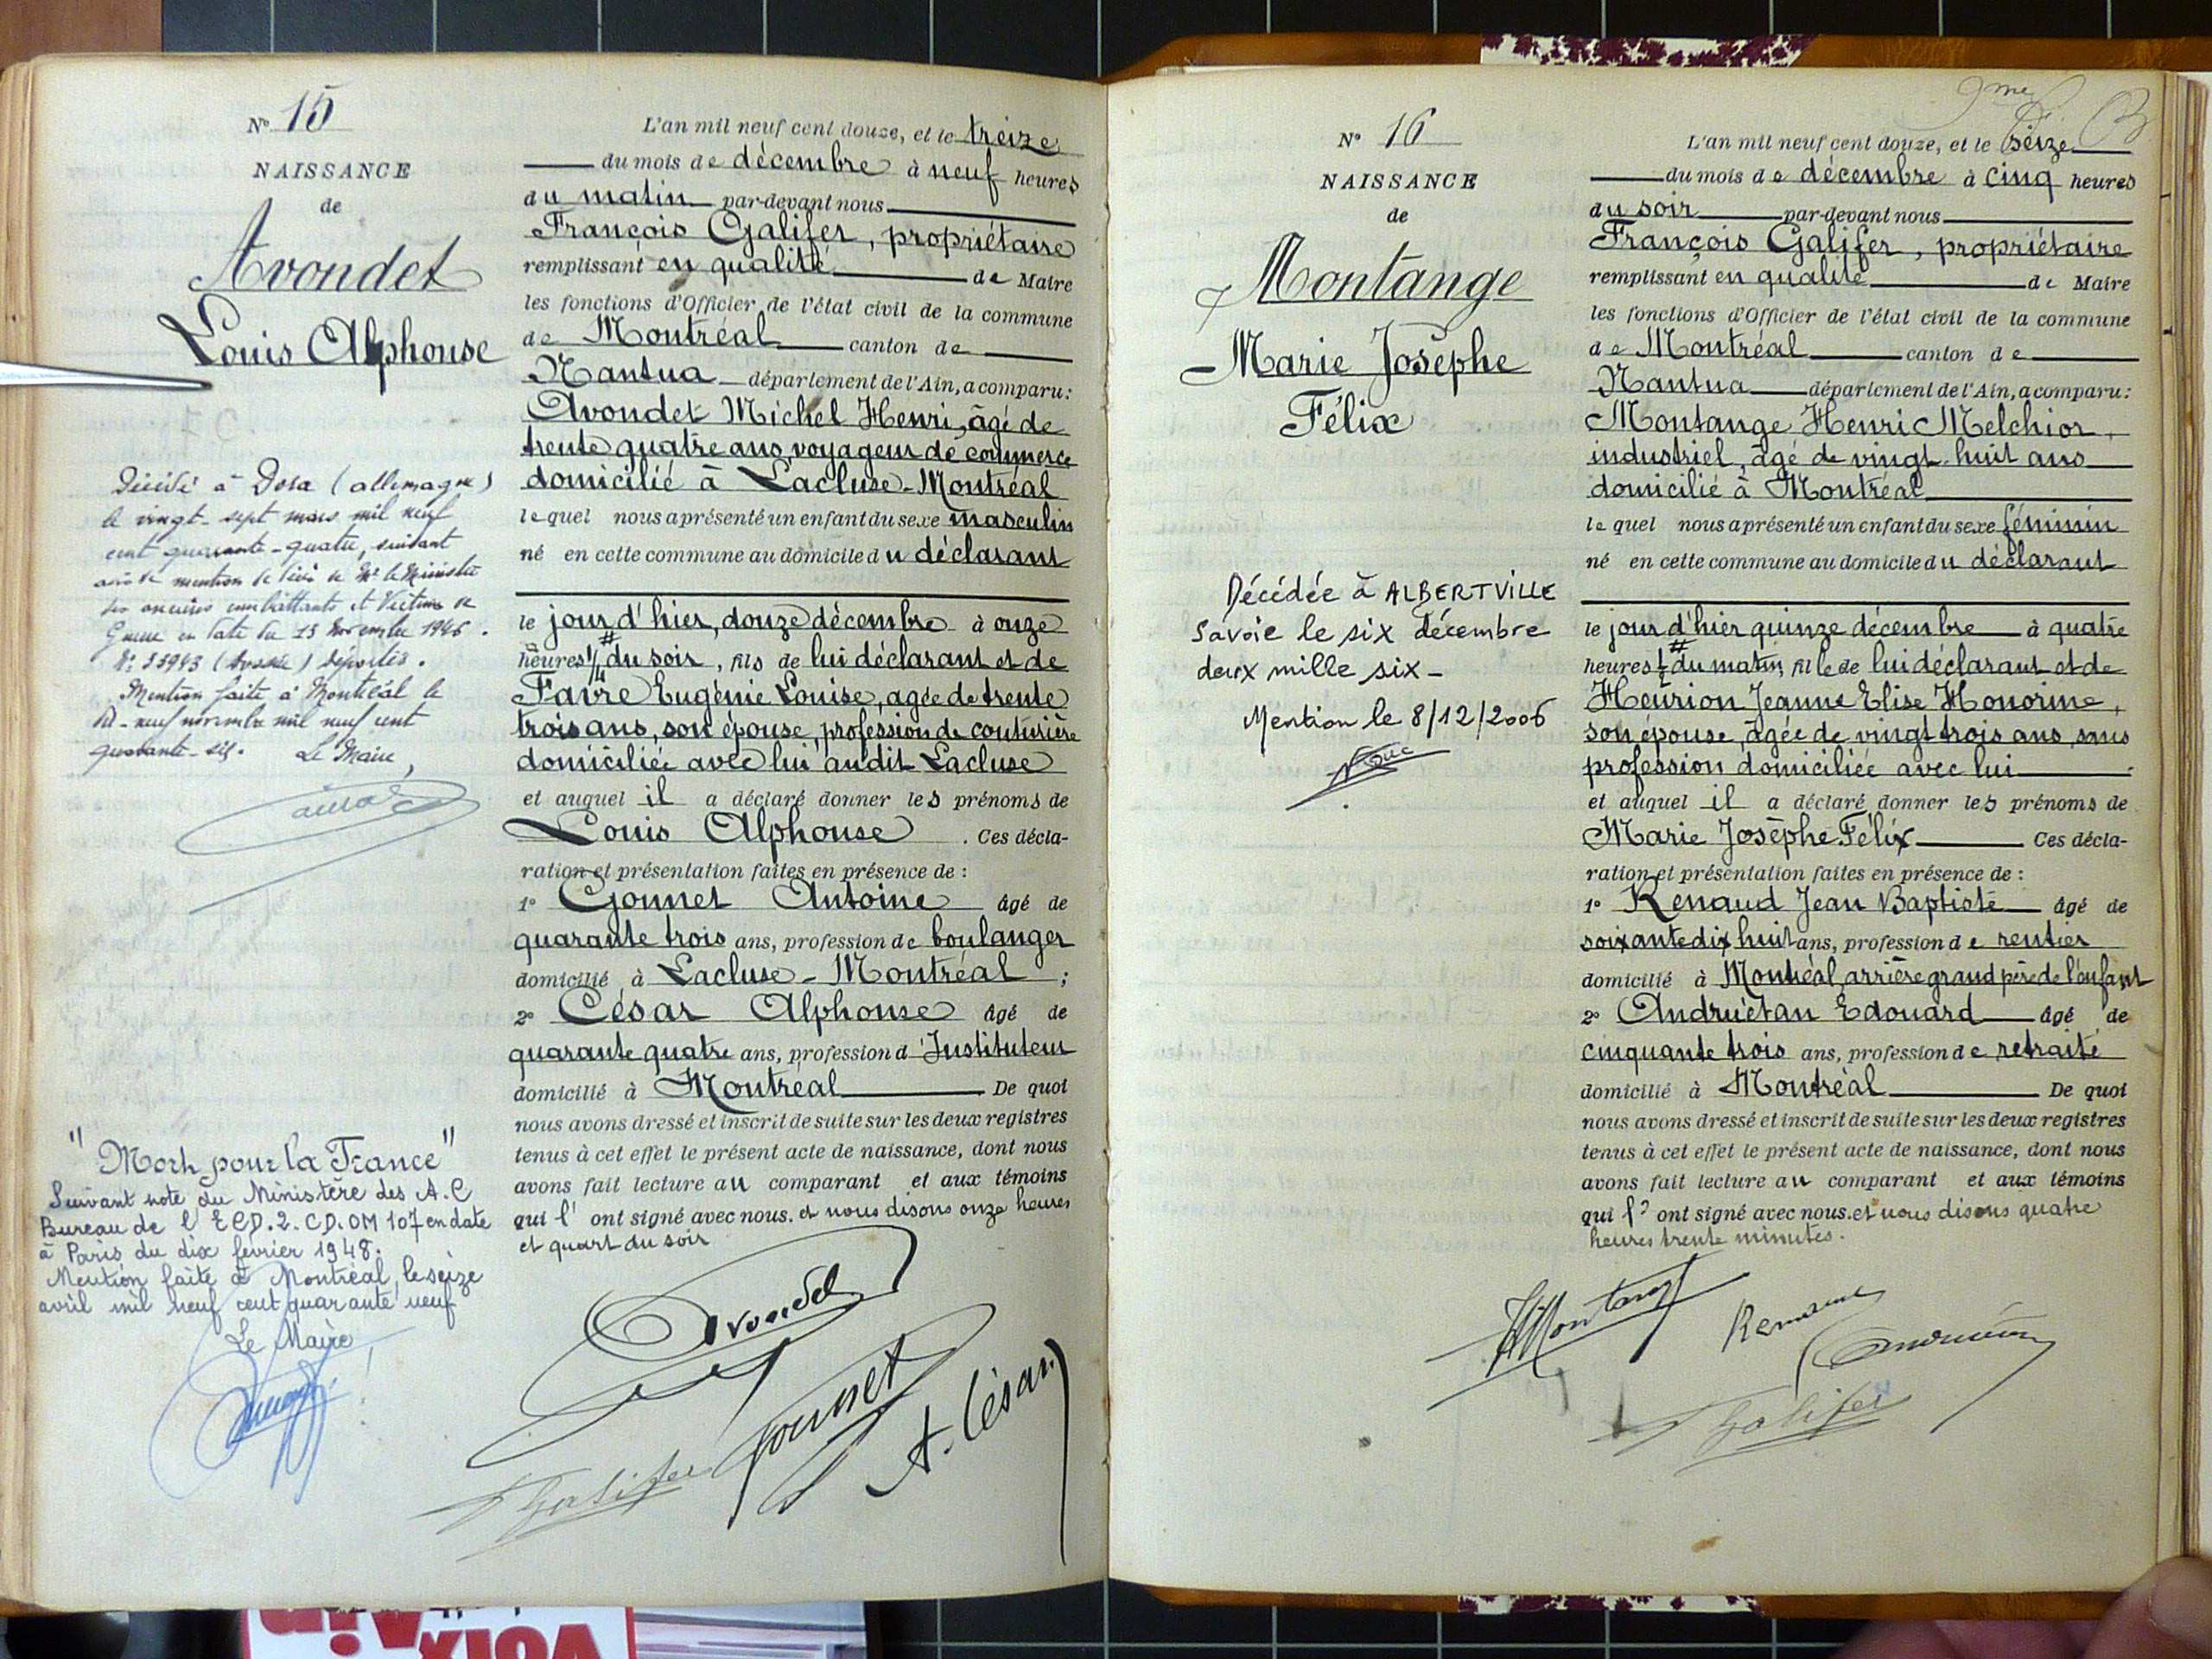 N° 15
NAISSANCE
de
Avondet
Louis Alphonse
Décédé à Dora (allemagne)
le vingt-sept mars mil neuf
cent quarante-quatre, suivant
avis de mention de décès de Mr le Ministre
des anciens combattants et Victimes de
Guerre en date du 13 novembre 1946.
déportés.
Mention faite à Montréal le
dix-neuf novembre mil neuf cent
quarante-six. Le Maire,
"Mort pour la France"
Suivant note du Ministère des A.C
Bureau de l'ECD.2.CD.OM 107 en date
à Paris du dix février 1948.
Mention faite à Montréal, le seize
avril mil neuf cent quarante neuf
Le Maire
L'an mil neuf cent douze, et le treize
du mois de décembre à neuf heures
du matin par-devant nous
François Galifer, propriétaire
remplissant en qualité de Maire
les fonctions d'Officier de l'état civil de la commune
de Montréal canton de
Nantua département de l'Ain, a comparu:
Avondet Michel Henri, âgé de
trente quatre ans, voyageur de commerce
domicilié à Lacluse-Montréal
lequel nous a présenté un enfant du sexe masculin
né en cette commune au domicile du déclarant
le jour d'hier, douze décembre à onze
heures 1/4 # du soir, fils de lui déclarant et de
Favre Eugénie Louise, agée de trente
trois ans, son épouse, profession de couturière
domiciliée avec lui audit Lacluse
et auquel il a déclaré donner les prénoms de
Louis Alphonse. Ces décla-
ration et présentation faites en présence de :
1° Gonnet Antoine âgé de
quarante trois ans, profession de boulanger
domicilié à Lacluse-Montréal ;
2° César Alphonse âgé de
quarante quatre ans, profession d'Instituteur
domicilié à Montréal De quoi
nous avons dressé et inscrit de suite sur les deux registres
tenus à cet effet le présent acte de naissance, dont nous
avons fait lecture au comparant et aux témoins
qui l'ont signé avec nous. et nous disons onze heures
et quart du soir
Avondet
Galifer Gonnet A. César
9me
N° 16
NAISSANCE
de
Montange
Marie Josèphe
Félix
Décédée à ALBERTVILLE
Savoie le six décembre
deux mille six -
Mention le 8/12/2006
L'an mil neuf cent douze, et le seize
du mois de décembre à cinq heures
du soir par-devant nous
François Galifer, propriétaire
remplissant en qualité de Maire
les fonctions d'Officier de l'état civil de la commune
de Montréal canton de
Nantua département de l'Ain, a comparu:
Montange Henri Melchior,
industriel, âgé de vingt-huit ans
domicilié à Montréal
lequel nous a présenté un enfant du sexe féminin
né en cette commune au domicile du déclarant
le jour d'hier quinze décembre à quatre
heures 1/2 # du matin, fille de lui déclarant et de
Heurion Jeanne Elise Honorine,
son épouse, âgée de vingt trois ans, sans
profession domiciliée avec lui
et auquel il a déclaré donner les prénoms de
Marie Josèphe Félix Ces décla-
ration et présentation faites en présence de :
1° Renaud Jean Baptiste âgé de
soixante dix huit ans, profession de rentier
domicilié à Montréal, arrière grand père de l'enfant
2° Andruétan Edouard âgé de
cinquante trois ans, profession de retraité
domicilié à Montréal De quoi
nous avons dressé et inscrit de suite sur les deux registres
tenus à cet effet le présent acte de naissance, dont nous
avons fait lecture au comparant et aux témoins
qui l'ont signé avec nous. et nous disons quatre
heures trente minutes.
HMontange Renaud
Galifer
VOIX